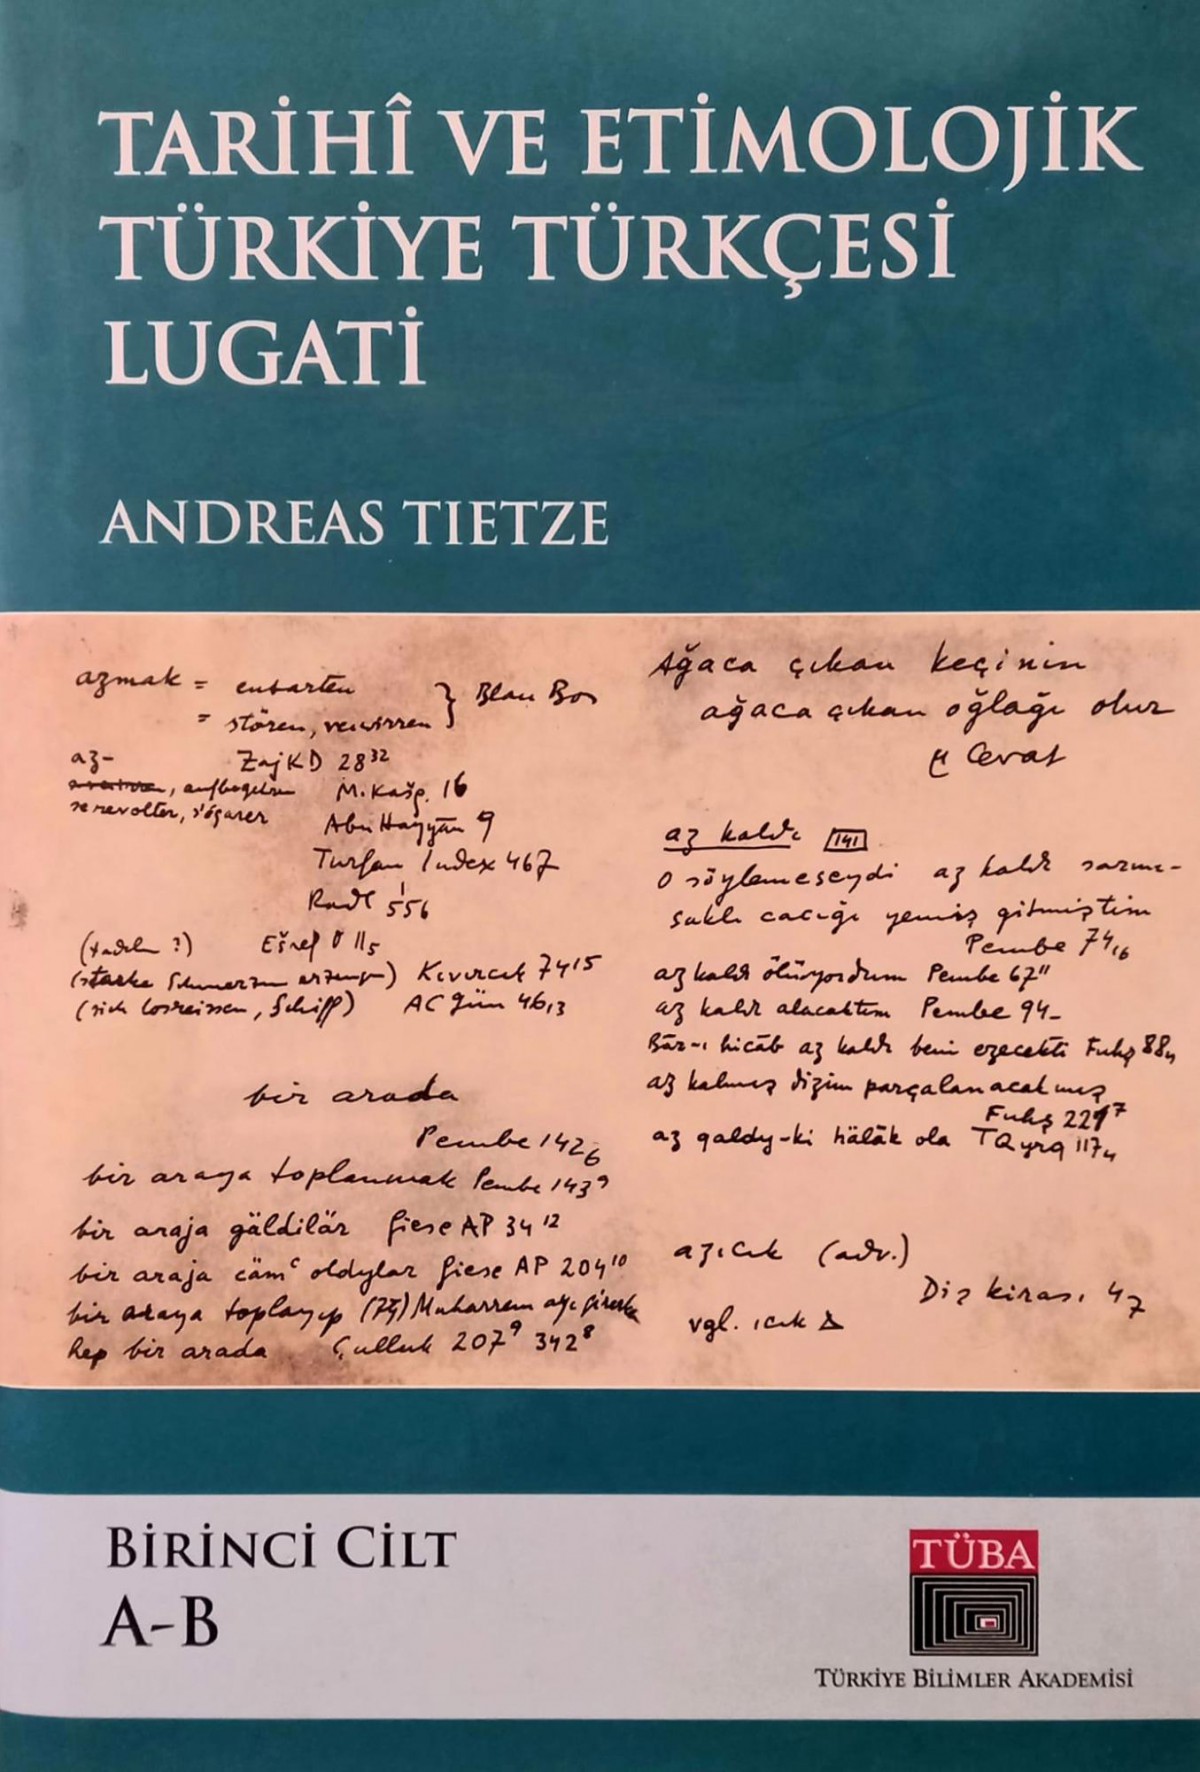 TARİHÎ VE ETİMOLOJİK
TÜRKİYE TÜRKÇESİ
LUGATİ
ANDREAS TIETZE
azmak = entarten
= stören, verwirren } Blau Bos
az- ZajKD 28 32
aufbegehren M. Kašg. 16
se revolter, s'égarer
Abu Hayyān 9
Turfan Index 467
Radl I 556
(tadeln ?) Ešref D 11 5
(starke Schmerzen erzeugen) Kıvırcık 74 15
(sich losreissen, Schiff) AC Gün 46 13
bir arada
Pembe 142 6
bir araya toplanmak Pembe 143 9
bir araja gäldilär Giese AP 34 12
bir araja cämʿ oldylar Giese AP 204 10
bir araya toplayıp Muharrem
hep bir arada Çulluk 207 9 342 8
Ağaca çıkan keçinin
ağaca çıkan oğlağı olur
Cevat
az kaldı 141
o söylemeseydi az kaldı sarmı-
saklı cacığı yemiş gitmiştim
Pembe 74 16
az kaldı ölüyordum Pembe 67 11
az kaldı alacaktım Pembe 94-
Bār-ı hicāb az kaldı beni ezecekti Fuhş 88
az kalmış dizim parçalanacakmış
Fuhş 229 7
az qaldy-ki hälāk ola TQyrq 117
azıcık (adv.)
Diş kirası 47
vgl. ıcık
BİRİNCİ CİLT
A-B
TÜBA
TÜRKİYE BİLİMLER AKADEMİSİ